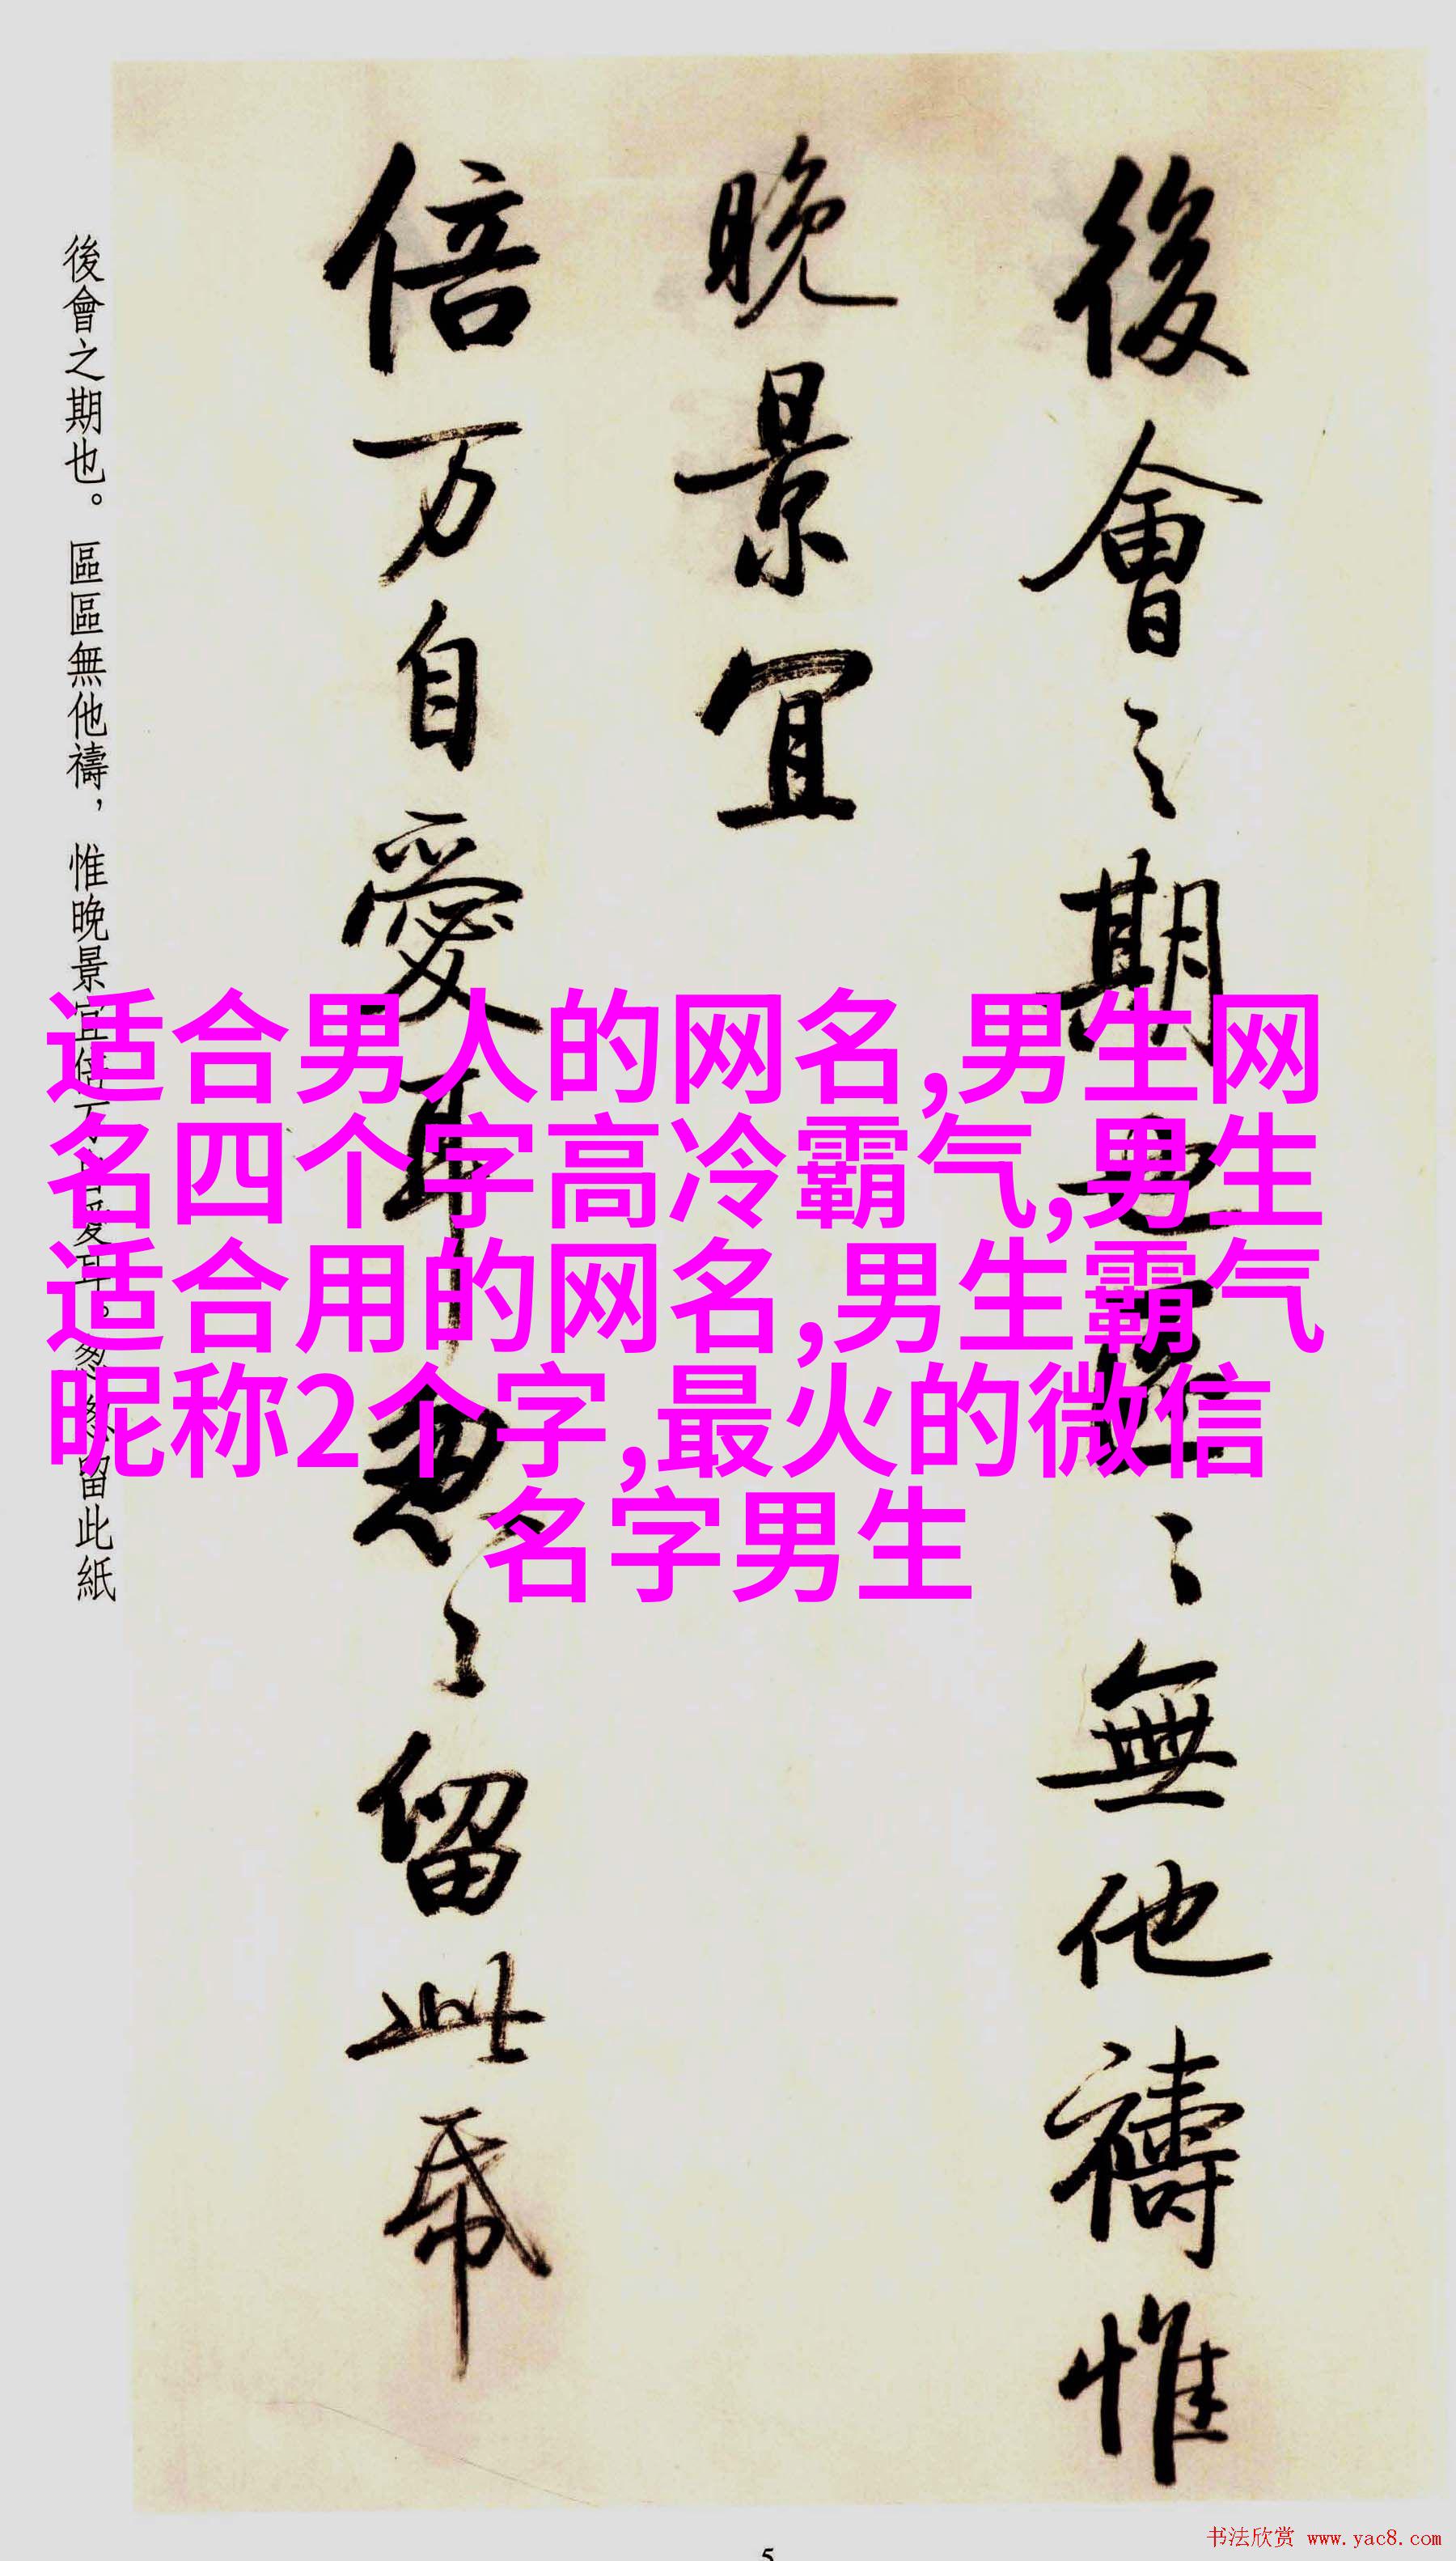 後會之期也區〻無他禱惟
晚景宜
倍万自愛耳怱〻留此帋
後會之期也。區區無他禱，惟晚景宜倍万自愛耳。怱怱留此紙
适合男人的网名,男生网
名四个字高冷霸气,男生
适合用的网名,男生霸气
昵称2个字,最火的微信
名字男生
书法欣赏 www.yac8.com
5